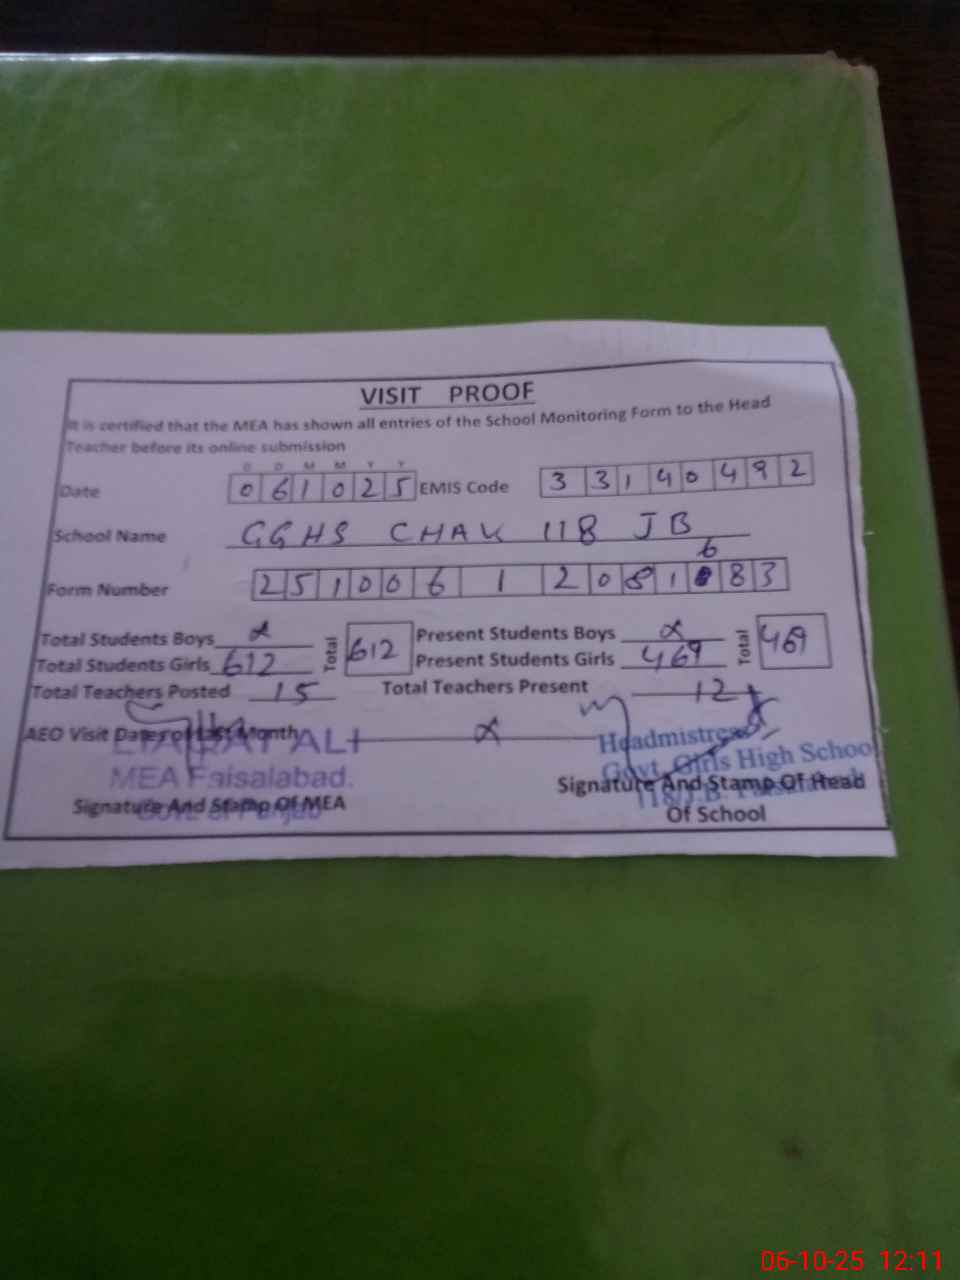 VISIT PROOF
It is certified that the MEA has shown all entries of the School Monitoring Form to the Head
Teacher before its online submission
D D M M Y Y
Date 0 6 1 0 2 5 EMIS Code 3 3 1 4 0 4 9 2
School Name GGHS CHAK 118 JB
6
Form Number 2 5 1 0 0 6 1 2 0 8 1 8 3
Total Students Boys Total 612 Present Students Boys Total 469
Total Students Girls 612 Present Students Girls 469
Total Teachers Posted 15 Total Teachers Present 12
AEO Visit Dates of Last Month
LIAQAT ALI Headmistress
MEA Faisalabad. Govt. Girls High School
Signature And Stamp Of MEA Signature And Stamp Of Head
Govt. of Punjab 118/J.B.
Of School
06-10-25 12:11